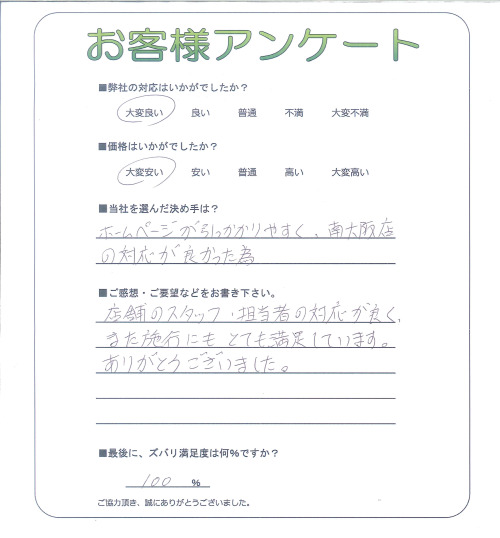 お客様アンケート
■弊社の対応はいかがでしたか？
大変良い 良い 普通 不満 大変不満
■価格はいかがでしたか？
大変安い 安い 普通 高い 大変高い
■当社を選んだ決め手は？
ホームページが引っかかりやすく、南大阪店
の対応が良かった為
■ご感想・ご要望などをお書き下さい。
店舗のスタッフ・担当者の対応が良く、
また施行にも とても満足しています。
ありがとうございました。
■最後に、ズバリ満足度は何％ですか？
100 ％
ご協力頂き、誠にありがとうございました。